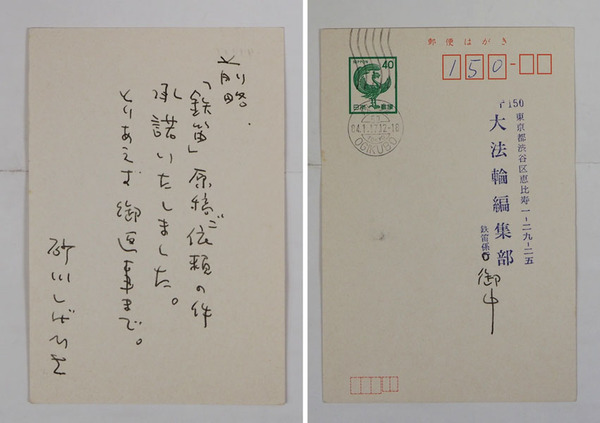 前略.
「鉄笛」原稿ご依頼の件
承諾いたしました。
とりあえず御返事まで。
砂川しげひさ
郵便はがき
150-
40
日本郵便
OGIKUBO
〒150
東京都渋谷区恵比寿一-二九-二五
大法輪編集部
鉄笛係 御中